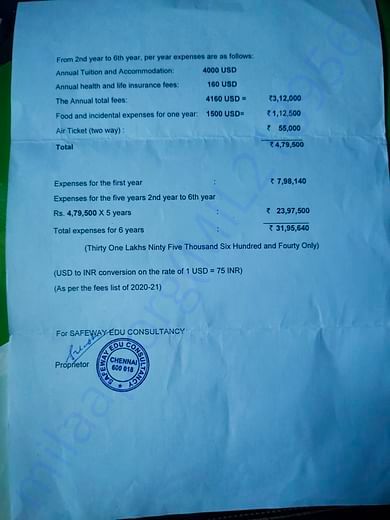 From 2nd year to 6th year, per year expenses are as follows:
Annual Tuition and Accommodation: 4000 USD
Annual health and life insurance fees: 160 USD
The Annual total fees: 4160 USD = ₹3,12,000
Food and incidental expenses for one year: 1500 USD= ₹ 1,12,500
Air Ticket (two way) : ₹ 55,000
Total ₹ 4,79,500
Expenses for the first year : ₹ 7,98,140
Expenses for the five years 2nd year to 6th year
Rs. 4,79,500 X 5 years : ₹ 23,97,500
Total expenses for 6 years : ₹ 31,95,640
(Thirty One Lakhs Ninty Five Thousand Six Hundred and Fourty Only)
(USD to INR conversion on the rate of 1 USD = 75 INR)
(As per the fees list of 2020-21)
For SAFEWAY EDU CONSULTANCY
Proprietor
SAFEWAY EDU CONSULTANCY
CHENNAI
600 018